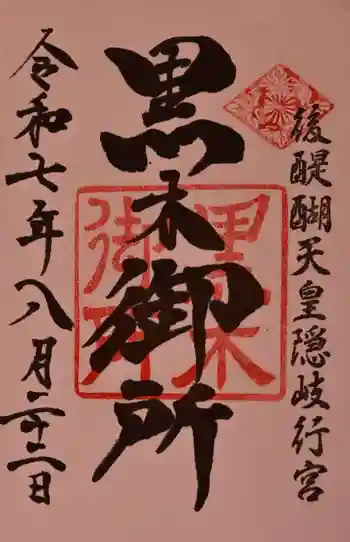 後醍醐天皇隠岐行宮
黒木御所
黒木御所
令和七年八月二十二日